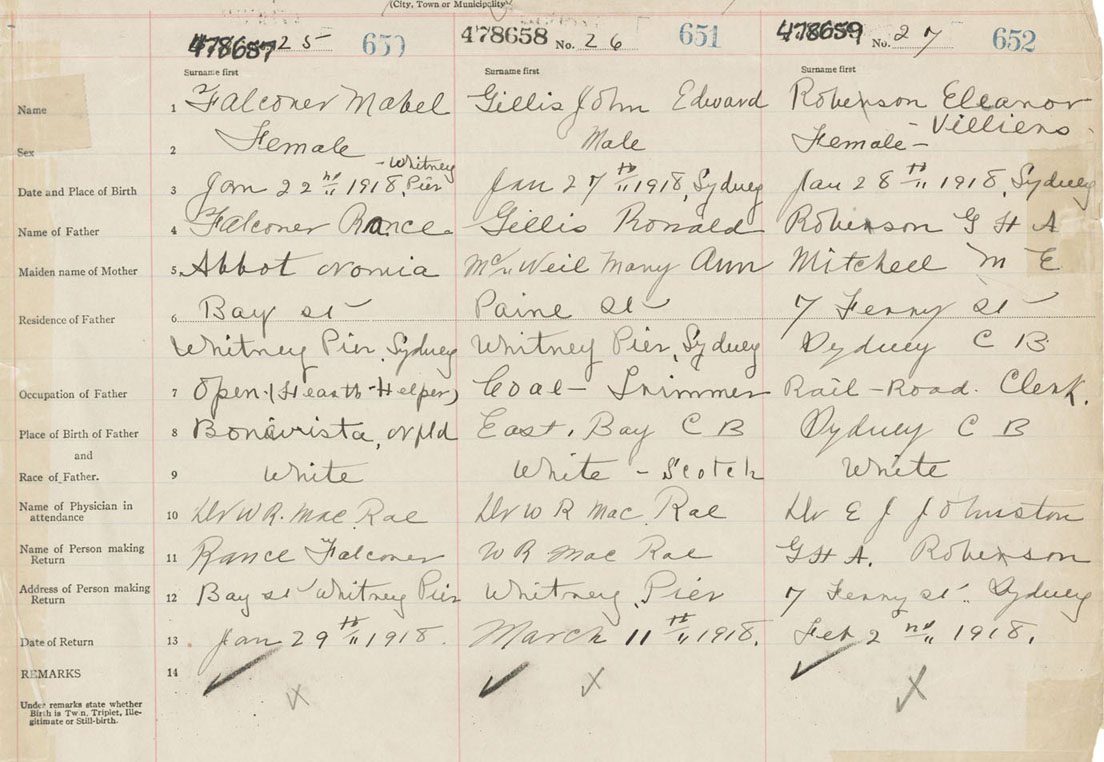 (City, Town or Municipality)
478657 25 650 478658 No. 26 651 478659 No. 27 652
Surname first Surname first Surname first
Name 1 Falconer Mabel Gillis John Edward Roberson Eleanor
- Villiers
Sex 2 Female Male Female -
- Whitney
Date and Place of Birth 3 Jan 22nd 1918, Pier Jan 27th 1918, Sydney Jan 28th 1918, Sydney
Name of Father 4 Falconer Rance Gillis Ronald Roberson G H A
Maiden name of Mother 5 Abbot McNeil Mary Ann Mitchell M E
Residence of Father 6 Bay st Paine st 7 Ferry st
Whitney Pier, Sydney Whitney Pier, Sydney Sydney C B
Occupation of Father 7 Open (Hearth-Helper) Coal - Trimmer Rail-Road. Clerk.
Place of Birth of Father 8 Bonavista, Nfld East, Bay C B Sydney C B
and
Race of Father. 9 White White - Scotch White
Name of Physician in
attendance 10 Dr W R. Mac Rae Dr W R Mac Rae Dr E J Johnston
Name of Person making
Return 11 Rance Falconer W R Mac Rae G H A. Roberson
Address of Person making
Return 12 Bay st Whitney Pier Whitney, Pier 7 Ferry st. Sydney
Date of Return 13 Jan 29th 1918. March 11th 1918. Feb 2nd 1918.
REMARKS 14
Under remarks state whether
Birth is Twin, Triplet, Ille-
gitimate or Still-birth.